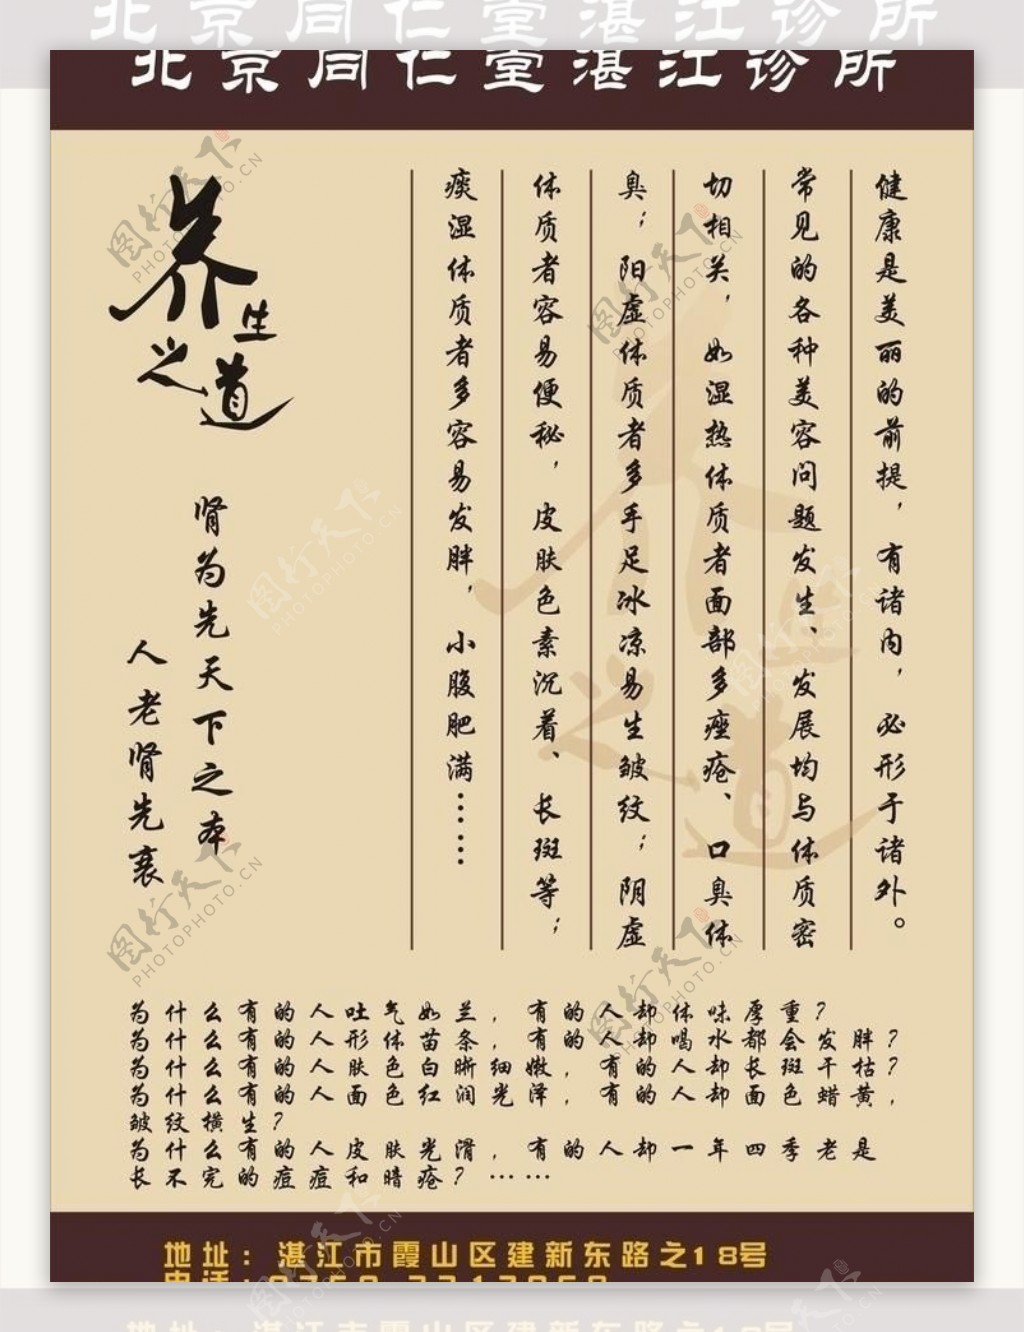 北京同仁堂湛江诊所
北京同仁堂湛江诊所
健康是美丽的前提，有诸内，必形于诸外。
常见的各种美容问题发生、发展均与体质密
切相关，如湿热体质者面部多痤疮、口臭体
臭；阳虚体质者多手足冰凉易生皱纹；阴虚
体质者容易便秘，皮肤色素沉着、长斑等；
痰湿体质者多容易发胖，小腹肥满……
养生之道
肾为先天下之本
人老肾先衰
为什么有的人吐气如兰，有的人却体味厚重？
为什么有的人形体苗条，有的人却喝水都会发胖？
为什么有的人肤色白晰细嫩，有的人却长斑干枯？
为什么有的人面色红润光泽，有的人却面色蜡黄，
皱纹横生？
为什么有的人皮肤光滑，有的人却一年四季老是
长不完的痘痘和暗疮？……
地址：湛江市霞山区建新东路之18号
电话：